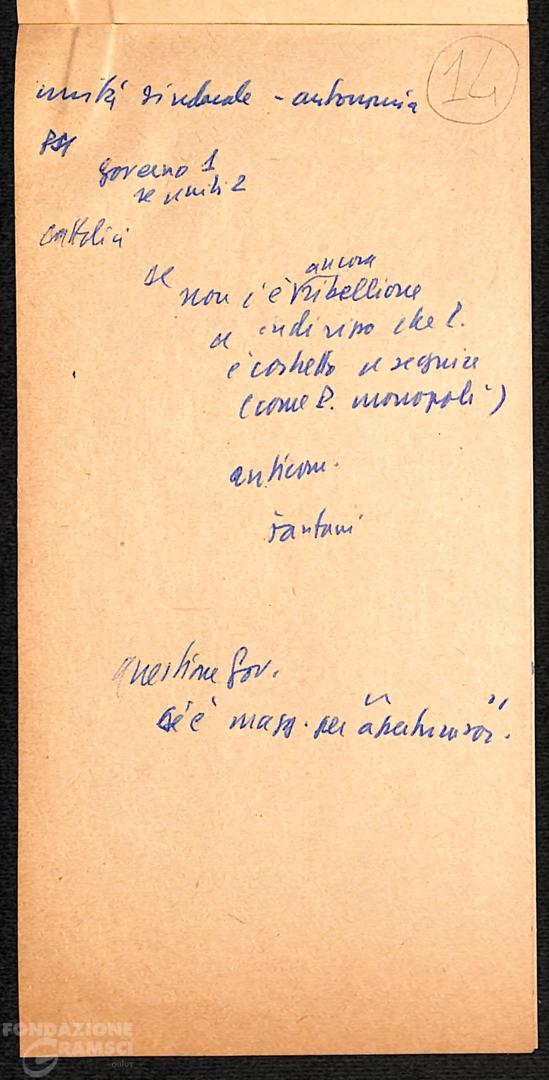 14
unità sindacale - autonomia
PSI
governo 1
se uniti 2
cattolici
se
ancora
non c'è ribellione
è costretto a seguire
(come P. monopoli)
anticom.
Fanfani
questione gov.
c'è magg. per "apertura soc."
FONDAZIONE
GRAMSCI
onlus